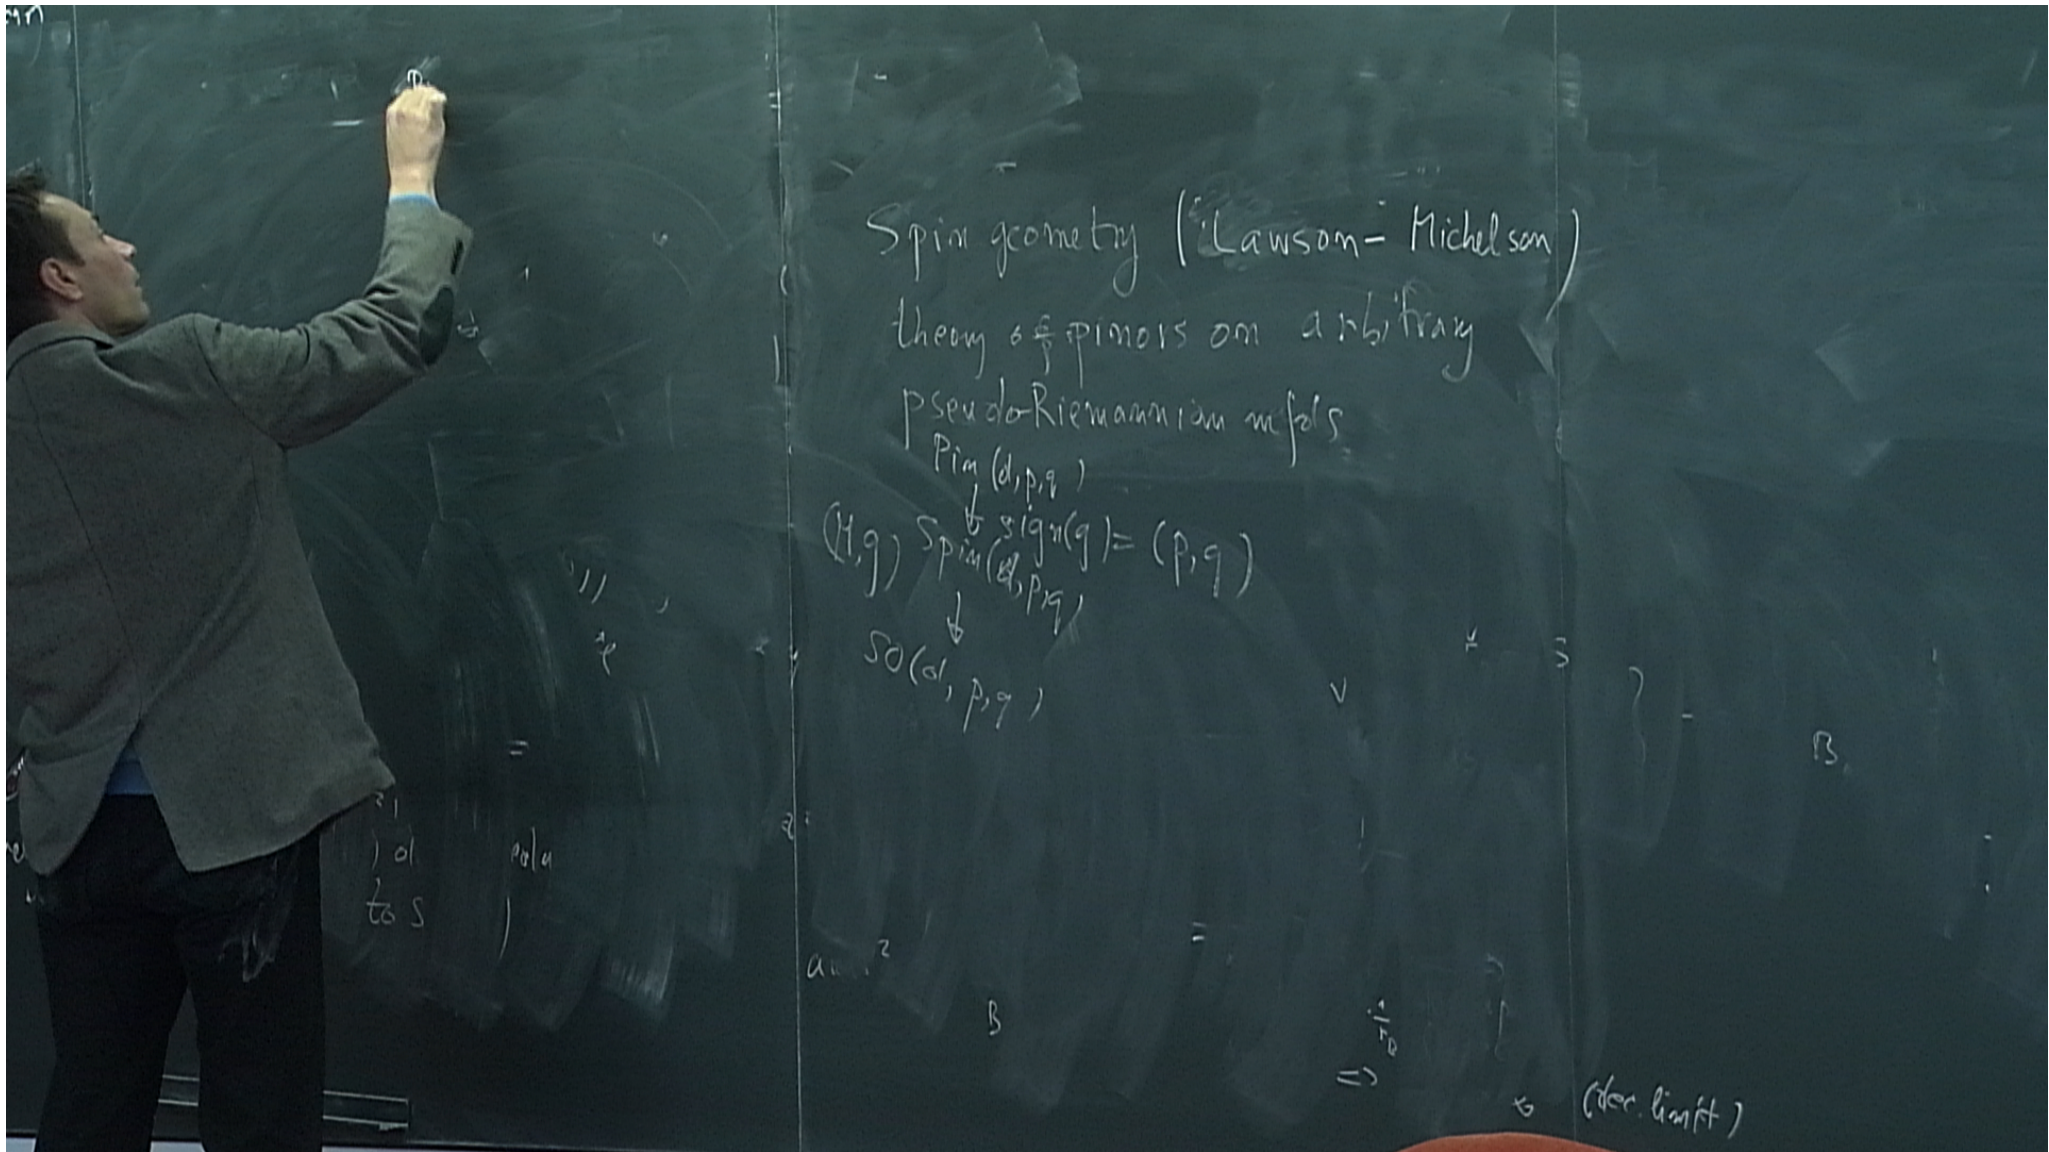 Spin geometry (Lawson-Michelson)
theory of spinors on arbitrary
pseudo-Riemannian mfds
Pin (d,p,q)
↓
(M,g) sign(g) = (p,q)
Spin(d,p,q)
↓
SO(d,p,q)
to S
B
B
=>
(dec. limit)